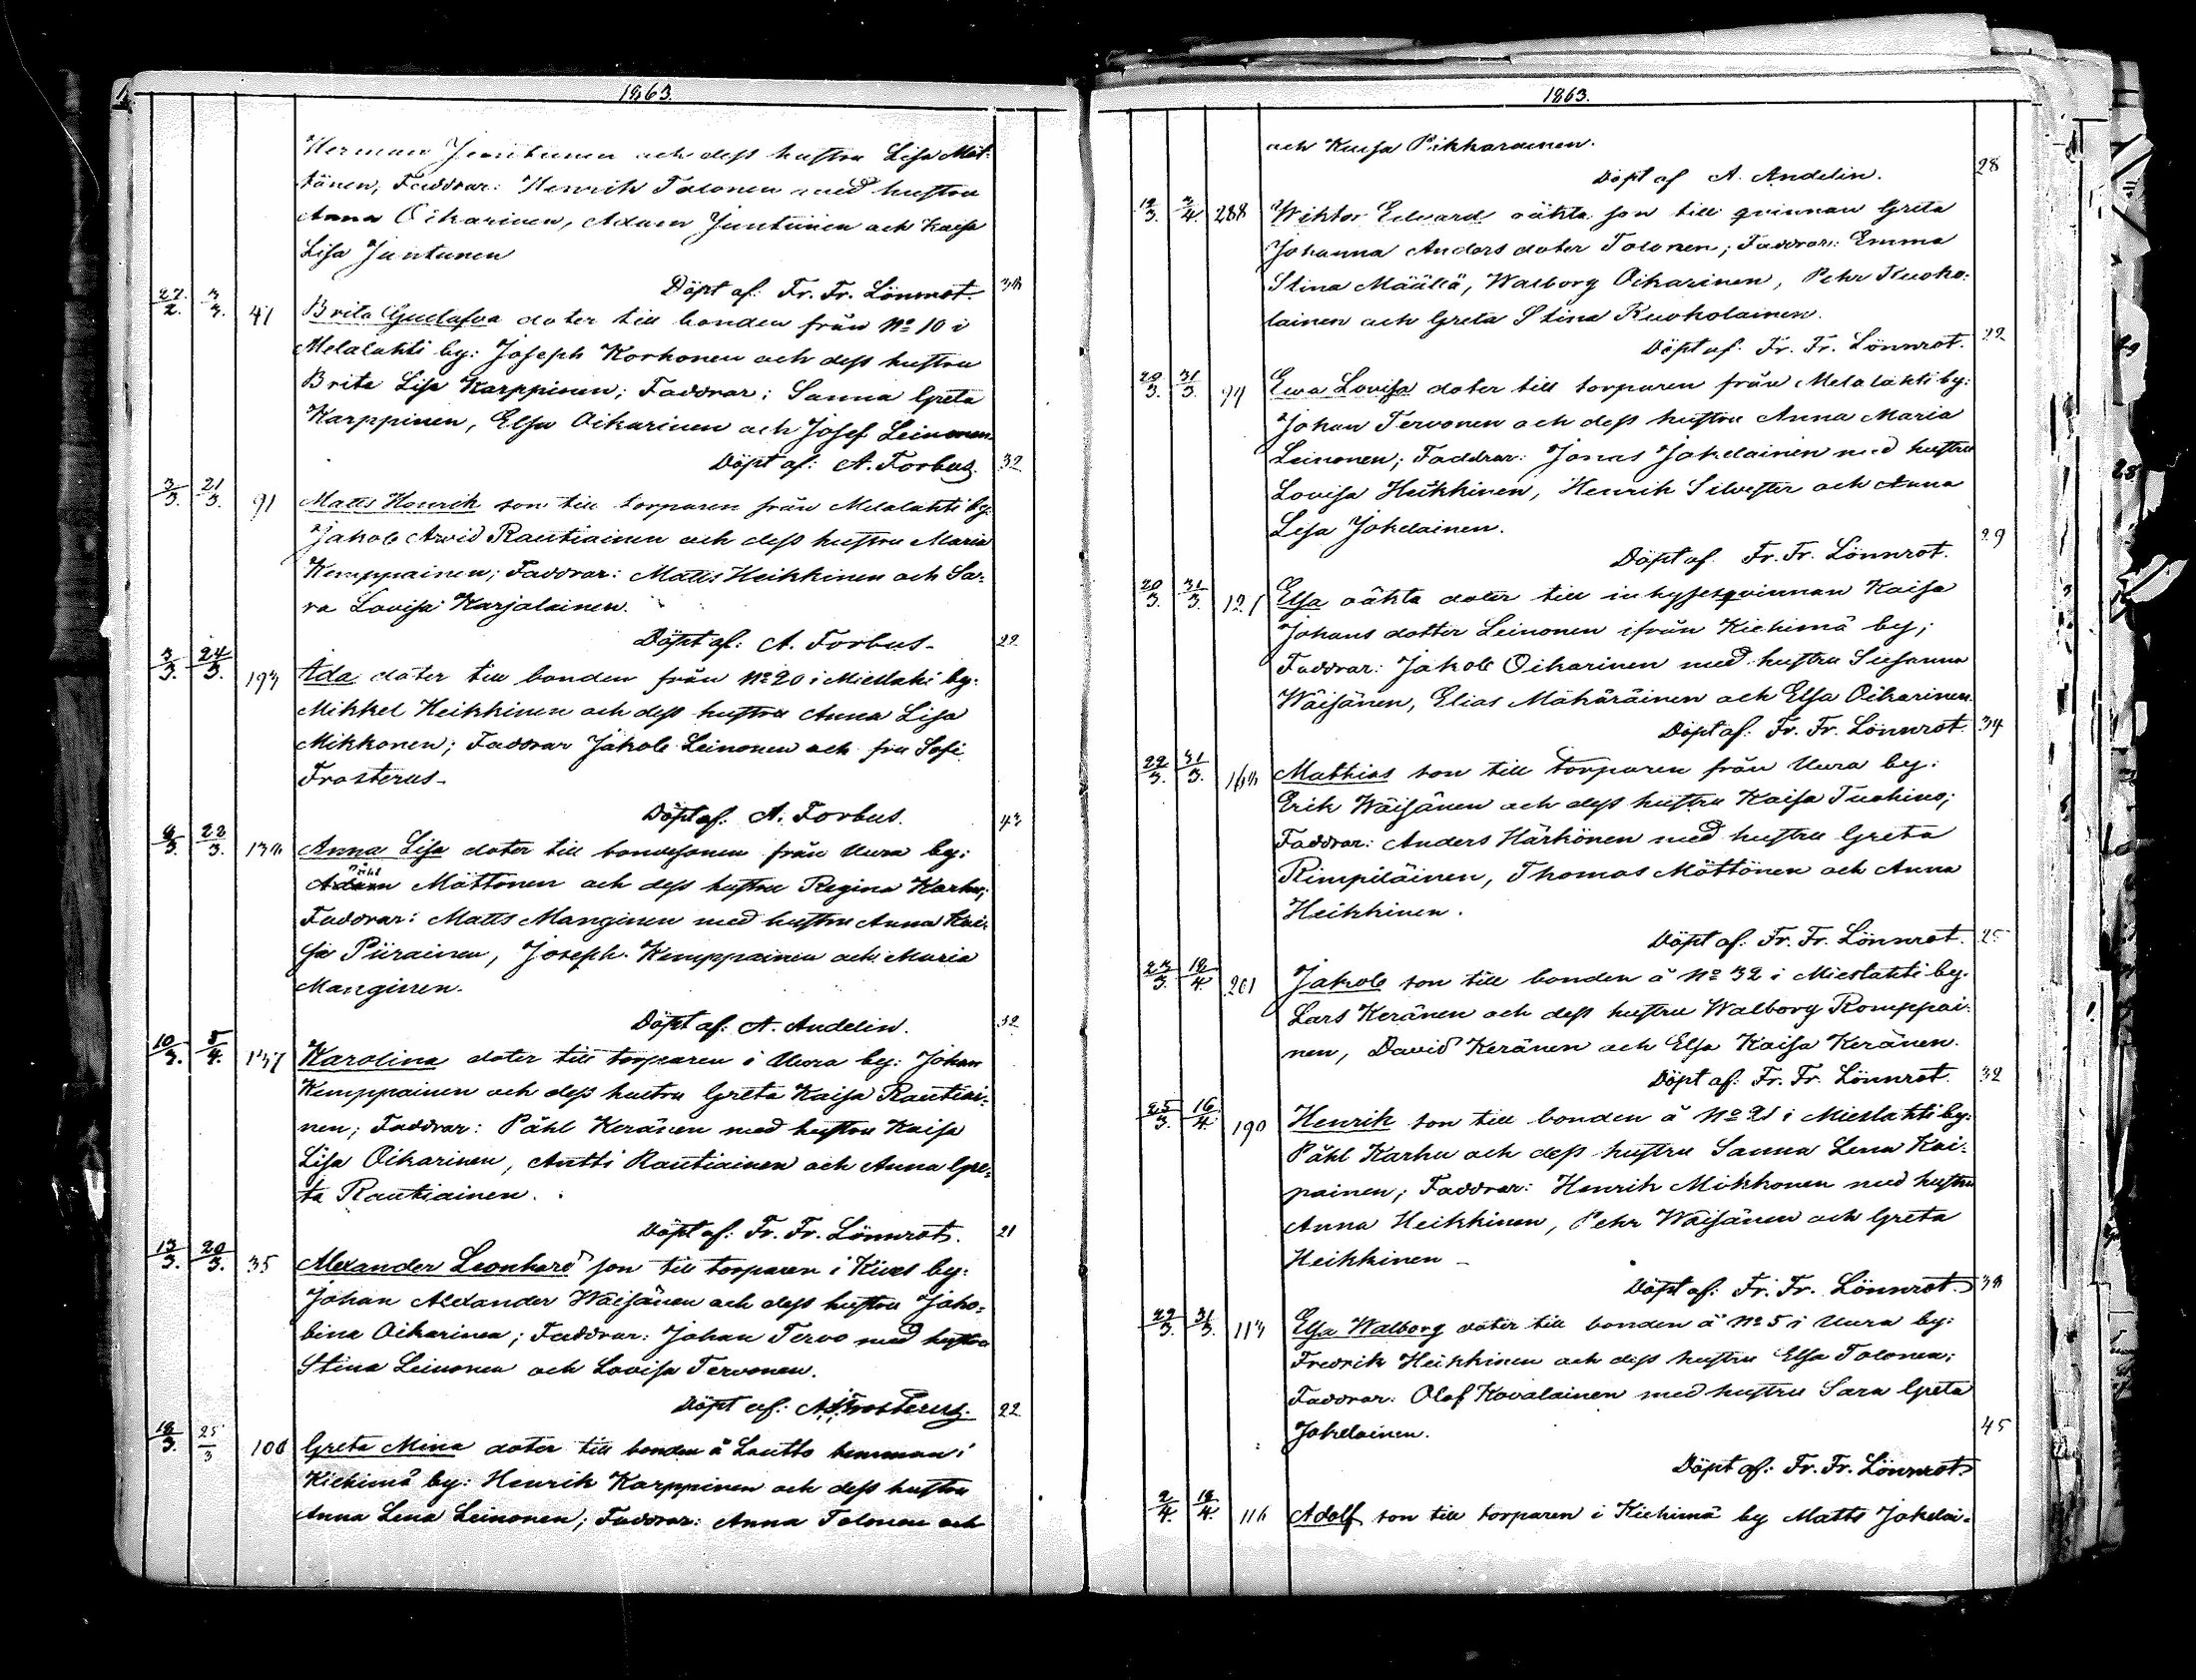 1863.
Herman Juntunen och dess hustru Lisa Möt-
tönen, Faddrar: Henrik Tolonen med hustru
Anna Oikarinen, Adam Juntunen och Kaisa
Lisa Juntunen
Döpt af: Fr. Fr. Lönnrot.
27/2. 3/3. 41 Brita Gustafva doter till bonden från No 10 i
Melalahti by: Joseph Korhonen och dess hustru
Brita Lisa Karppinen; Faddrar: Sanna Greta
Karppinen, Elsa Oikarinen och Josef Leinonen.
Döpt af: A. Forbus. 32
3/3. 21/3. 91 Matts Henrik son till torparen från Melalahti by:
Jakob Arvid Rautiainen och dess hustru Maria
Kemppainen; Faddrar: Matts Heikkinen och Sa-
ra Lovisa Karjalainen.
Döpt af: A. Forbus. 22
3/3. 24/3. 193 Ada doter till bonden från No 20 i Mieslahti by:
Mikkel Heikkinen och dess hustru Anna Lisa
Mikkonen; Faddrar Jakob Leinonen och fru Sofi
Frosterus.
Döpt af: A. Forbus. 43
22/3. Anna Lisa doter till bondesonen från Uura by:
Påhl
Adam Möttönen och dess hustru Regina Karhu;
Faddrar: Matts Manginen med hustru Anna Kai-
sa Piirainen, Joseph Kemppainen och Maria
Manginen.
Döpt af: A. Andelin. 32
10/3. 5/4. 137 Karolina doter till torparen i Uura by: Johan
Kemppainen och dess hustru Greta Kaisa Rautiai-
nen; Faddrar: Påhl Keränen med hustru Kaisa
Lisa Oikarinen, Antti Rautiainen och Anna Gre-
ta Rautiainen.
Döpt af: Fr. Fr. Lönnrot. 21
13/3. 20/3. 35 Alexander Leonhard son till torparen i Kives by:
Johan Alexander Wäisänen och dess hustru Jako-
bina Oikarinen; Faddrar: Johan Tervo med hustru
Stina Leinonen och Lovisa Tervonen.
Döpt af: A. Frosterus. 22
18/3. 25/3 100 Greta Mina doter till bonden å Lautto hemman i
Kiehimä by: Henrik Karppinen och dess hustru
Anna Lena Leinonen; Faddrar: Anna Tolonen och
1863.
och Kaisa Pikkarainen.
Döpt af A. Andelin. 28
288 Wiktor Edvard oäkta son till qvinnan Greta
Johanna Anders doter Tolonen; Faddrar: Emma
Stina Määttä, Walborg Oikarinen, Pehr Kuoho-
lainen och Greta Stina Kuoholainen.
Döpt af: Fr. Fr. Lönnrot. 22
20/3. 31/3. Ewa Lovisa doter till torparen från Melalahti by:
Johan Tervonen och dess hustru Anna Maria
Leinonen; Faddrar: Jonas Jokelainen med hustru
Lovisa Heikkinen, Henrik Silvester och Anna
Lisa Jokelainen.
Döpt af Fr. Fr. Lönnrot. 29
20/3. 31/3. 121 Elsa oäkta doter till inhysesqvinnan Kaisa
Johans dotter Leinonen ifrån Kiehimä by;
Faddrar: Jakob Oikarinen med hustru Susanna
Wäisänen, Elias Mähäräinen och Elsa Oikarinen.
Döpt af: Fr. Fr. Lönnrot. 34
22/3. 31/3. Mathias son till torparen från Uura by:
Erik Wäisänen och dess hustru Kaisa Tuohino;
Faddrar: Anders Härkönen med hustru Greta
Rimpiläinen, Thomas Möttönen och Anna
Heikkinen.
Döpt af: Fr. Fr. Lönnrot. 25
23/3. 12/4. 201 Jakob son till bonden å No 32 i Mieslahti by:
Lars Keränen och dess hustru Walborg Romppai-
nen, David Keränen och Elsa Kaisa Keränen.
Döpt af: Fr. Fr. Lönnrot. 32
25/3. 16/4. 190 Henrik son till bonden å No 21 i Mieslahti by:
Påhl Karhu och dess hustru Sanna Lena Kai-
painen; Faddrar: Henrik Mikkonen med hustru
Anna Heikkinen, Pehr Wäisänen och Greta
Heikkinen
Döpt af: Fr. Fr. Lönnrot.
29/3. 31/3. 113 Elsa Walborg doter till bonden å No 5 i Uura by:
Fredrik Heikkinen och dess hustru Elsa Tolonen;
Faddrar: Olof Kovalainen med hustru Sara Greta
Jokelainen. 45
Döpt af: Fr. Fr. Lönnrot.
2/4. 12/4. 116 Adolf son till torparen i Kiehimä by Matts Jokelai-